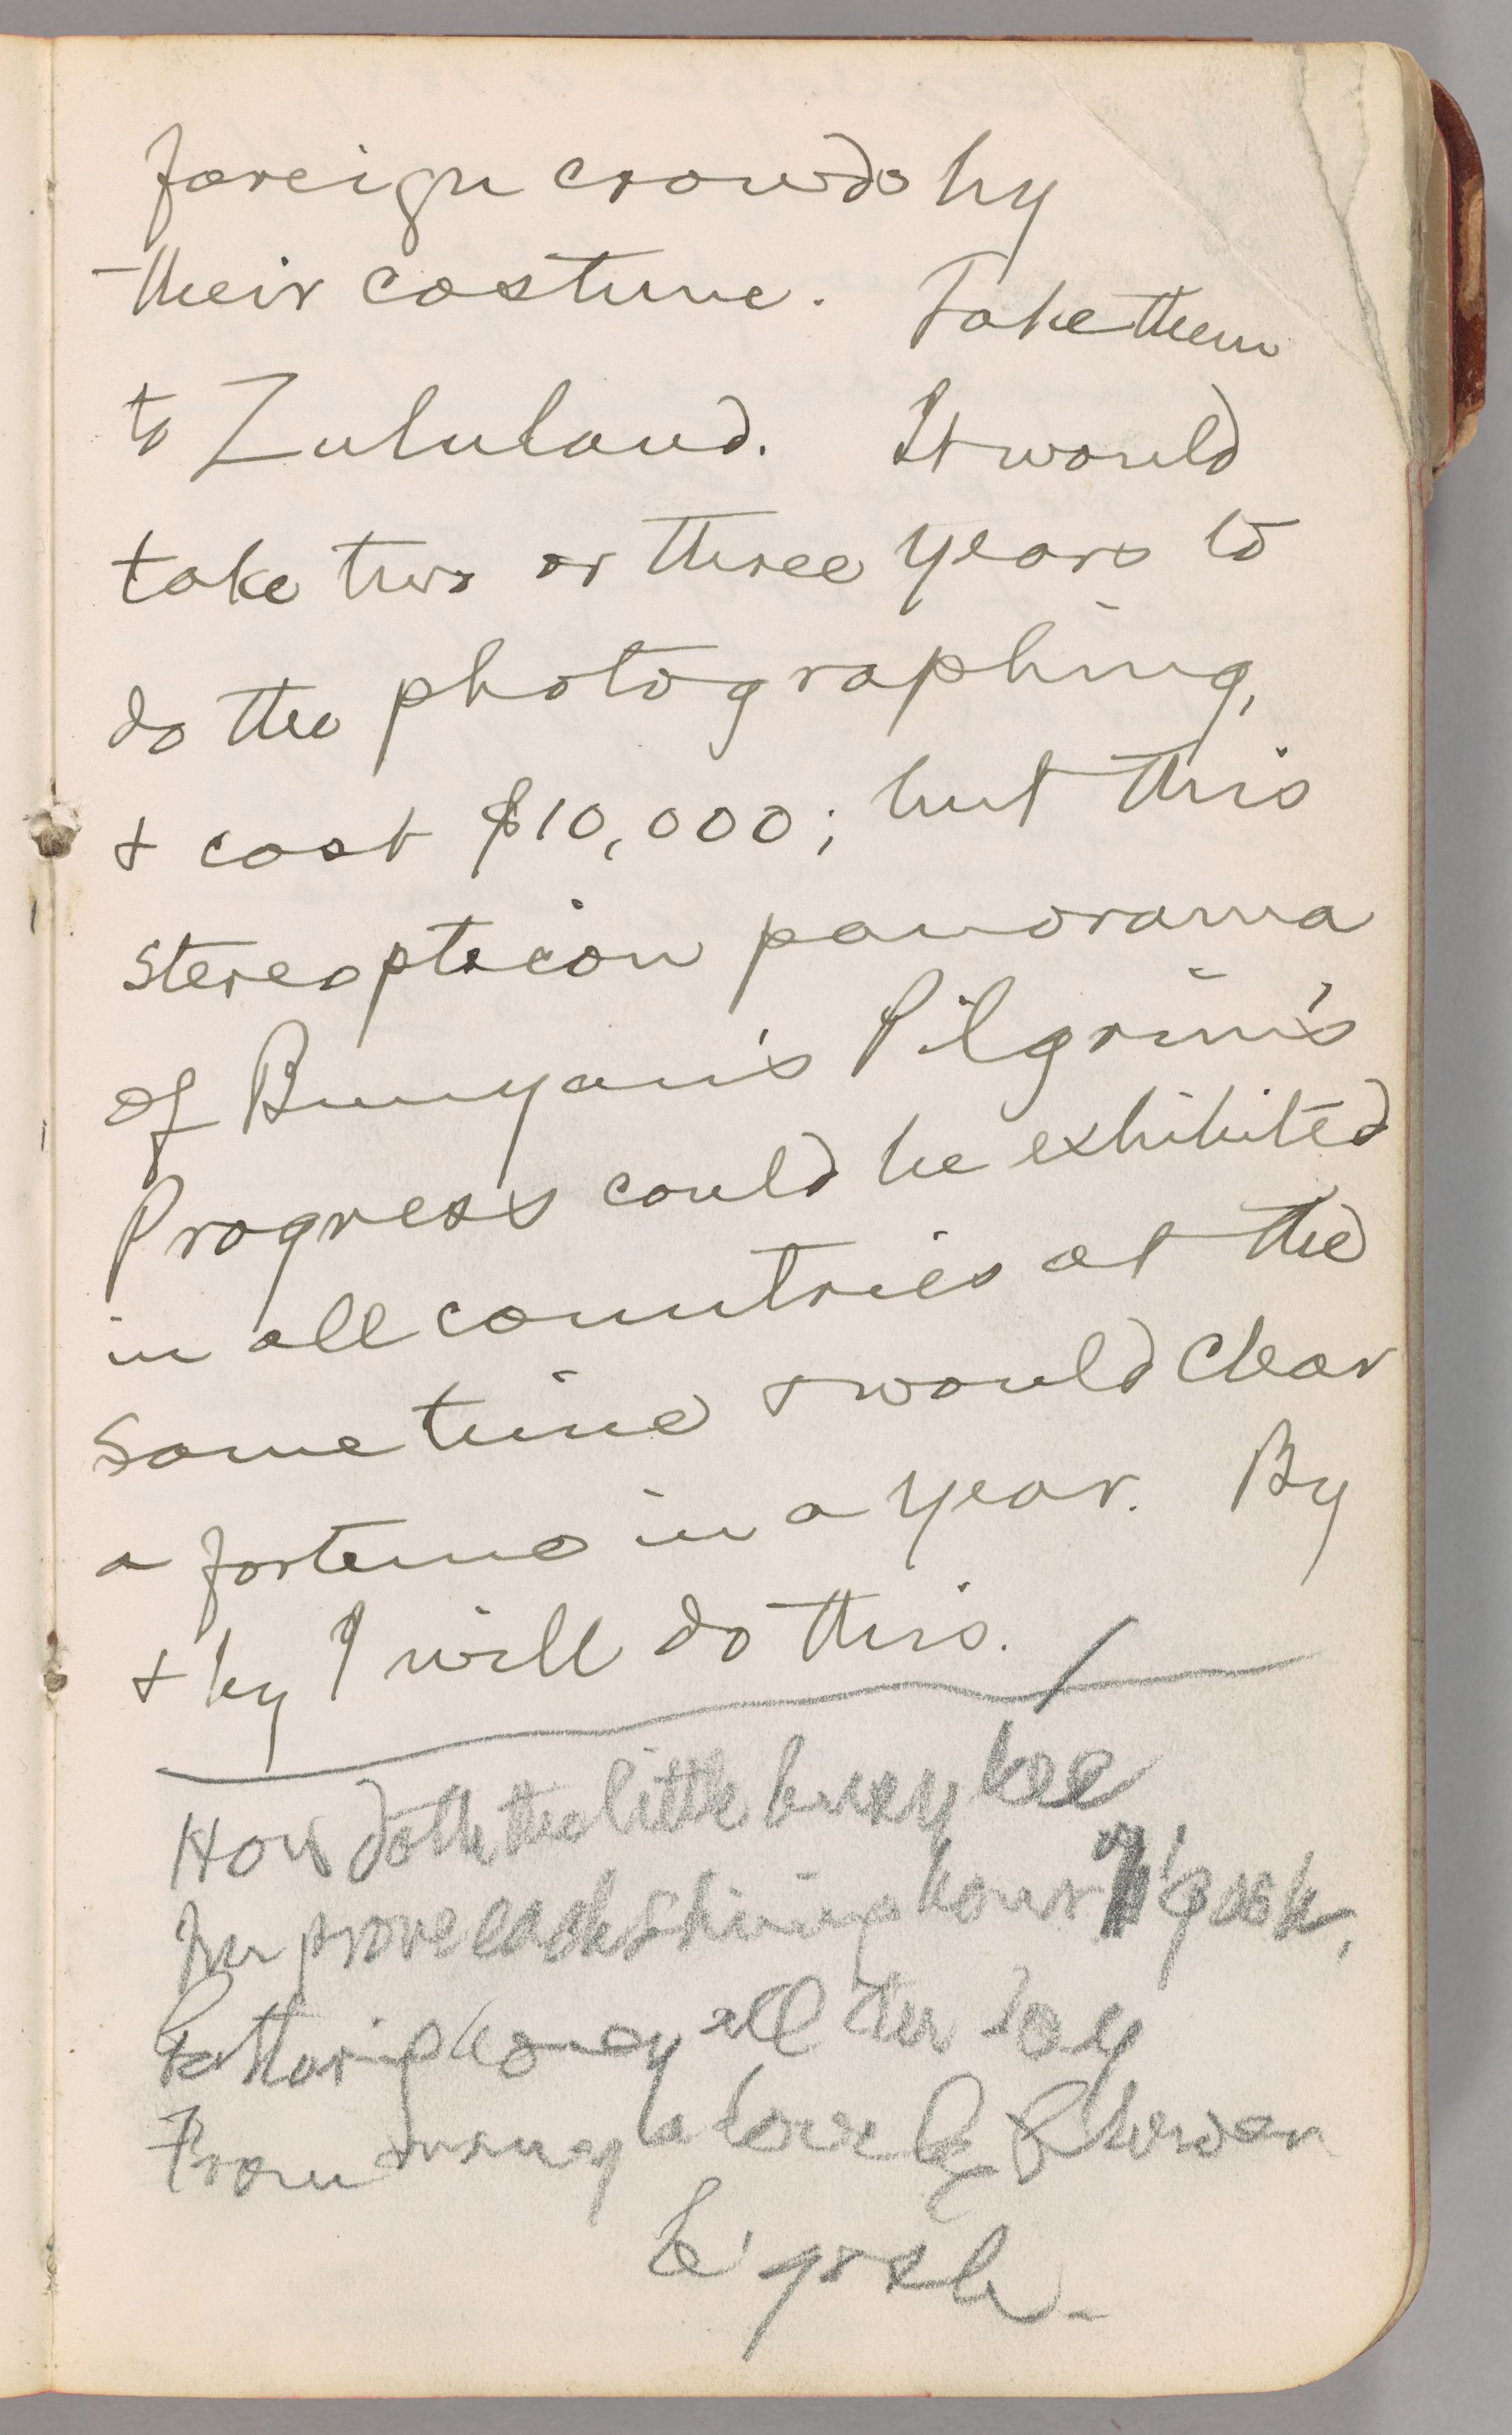 foreign crowds by
their costume. Take them
to Zululand. It would
take two or three years to
do the photographing,
& cost $10,000; but this
stereopticon panorama
of Bunyan's Pilgrim's
Progress could be exhibited
in all countries at the
same time & would clear
a fortune in a year. By
& by I will do this.
How doth the little busy bee
Improve each shining hour, gosh,
Gathering honey all the day
From many a lovely flower
be'gosh.